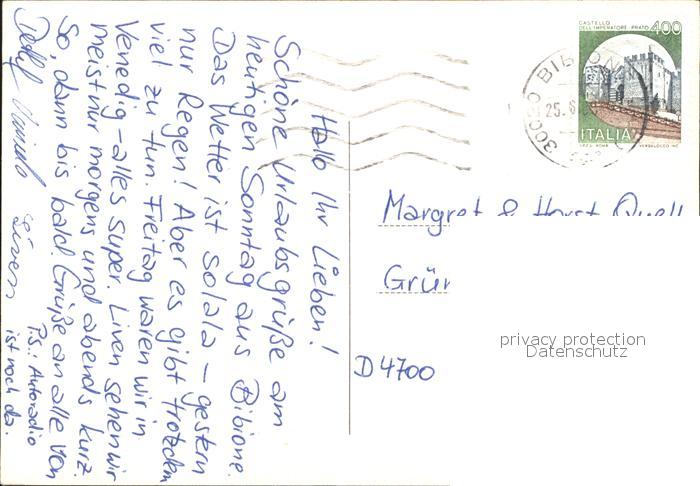 Hallo Ihr Lieben!
Schöne Urlaubsgrüße am
heutigen Sonntag aus Bibione.
Das Wetter ist solala – gestern
nur Regen! Aber es gibt trotzdem
viel zu tun. Freitag waren wir in
Venedig – alles super. Liven sehen wir
meist nur morgens und abends kurz.
So, dann bis bald! Grüße an alle von
Liven
P.S.: Autoradio
ist noch da.
CASTELLO
DELL'IMPERATORE - PRATO 400
ITALIA
30020 BIBIONE
25.6
Margret & Horst
D 4700
privacy protection
Datenschutz